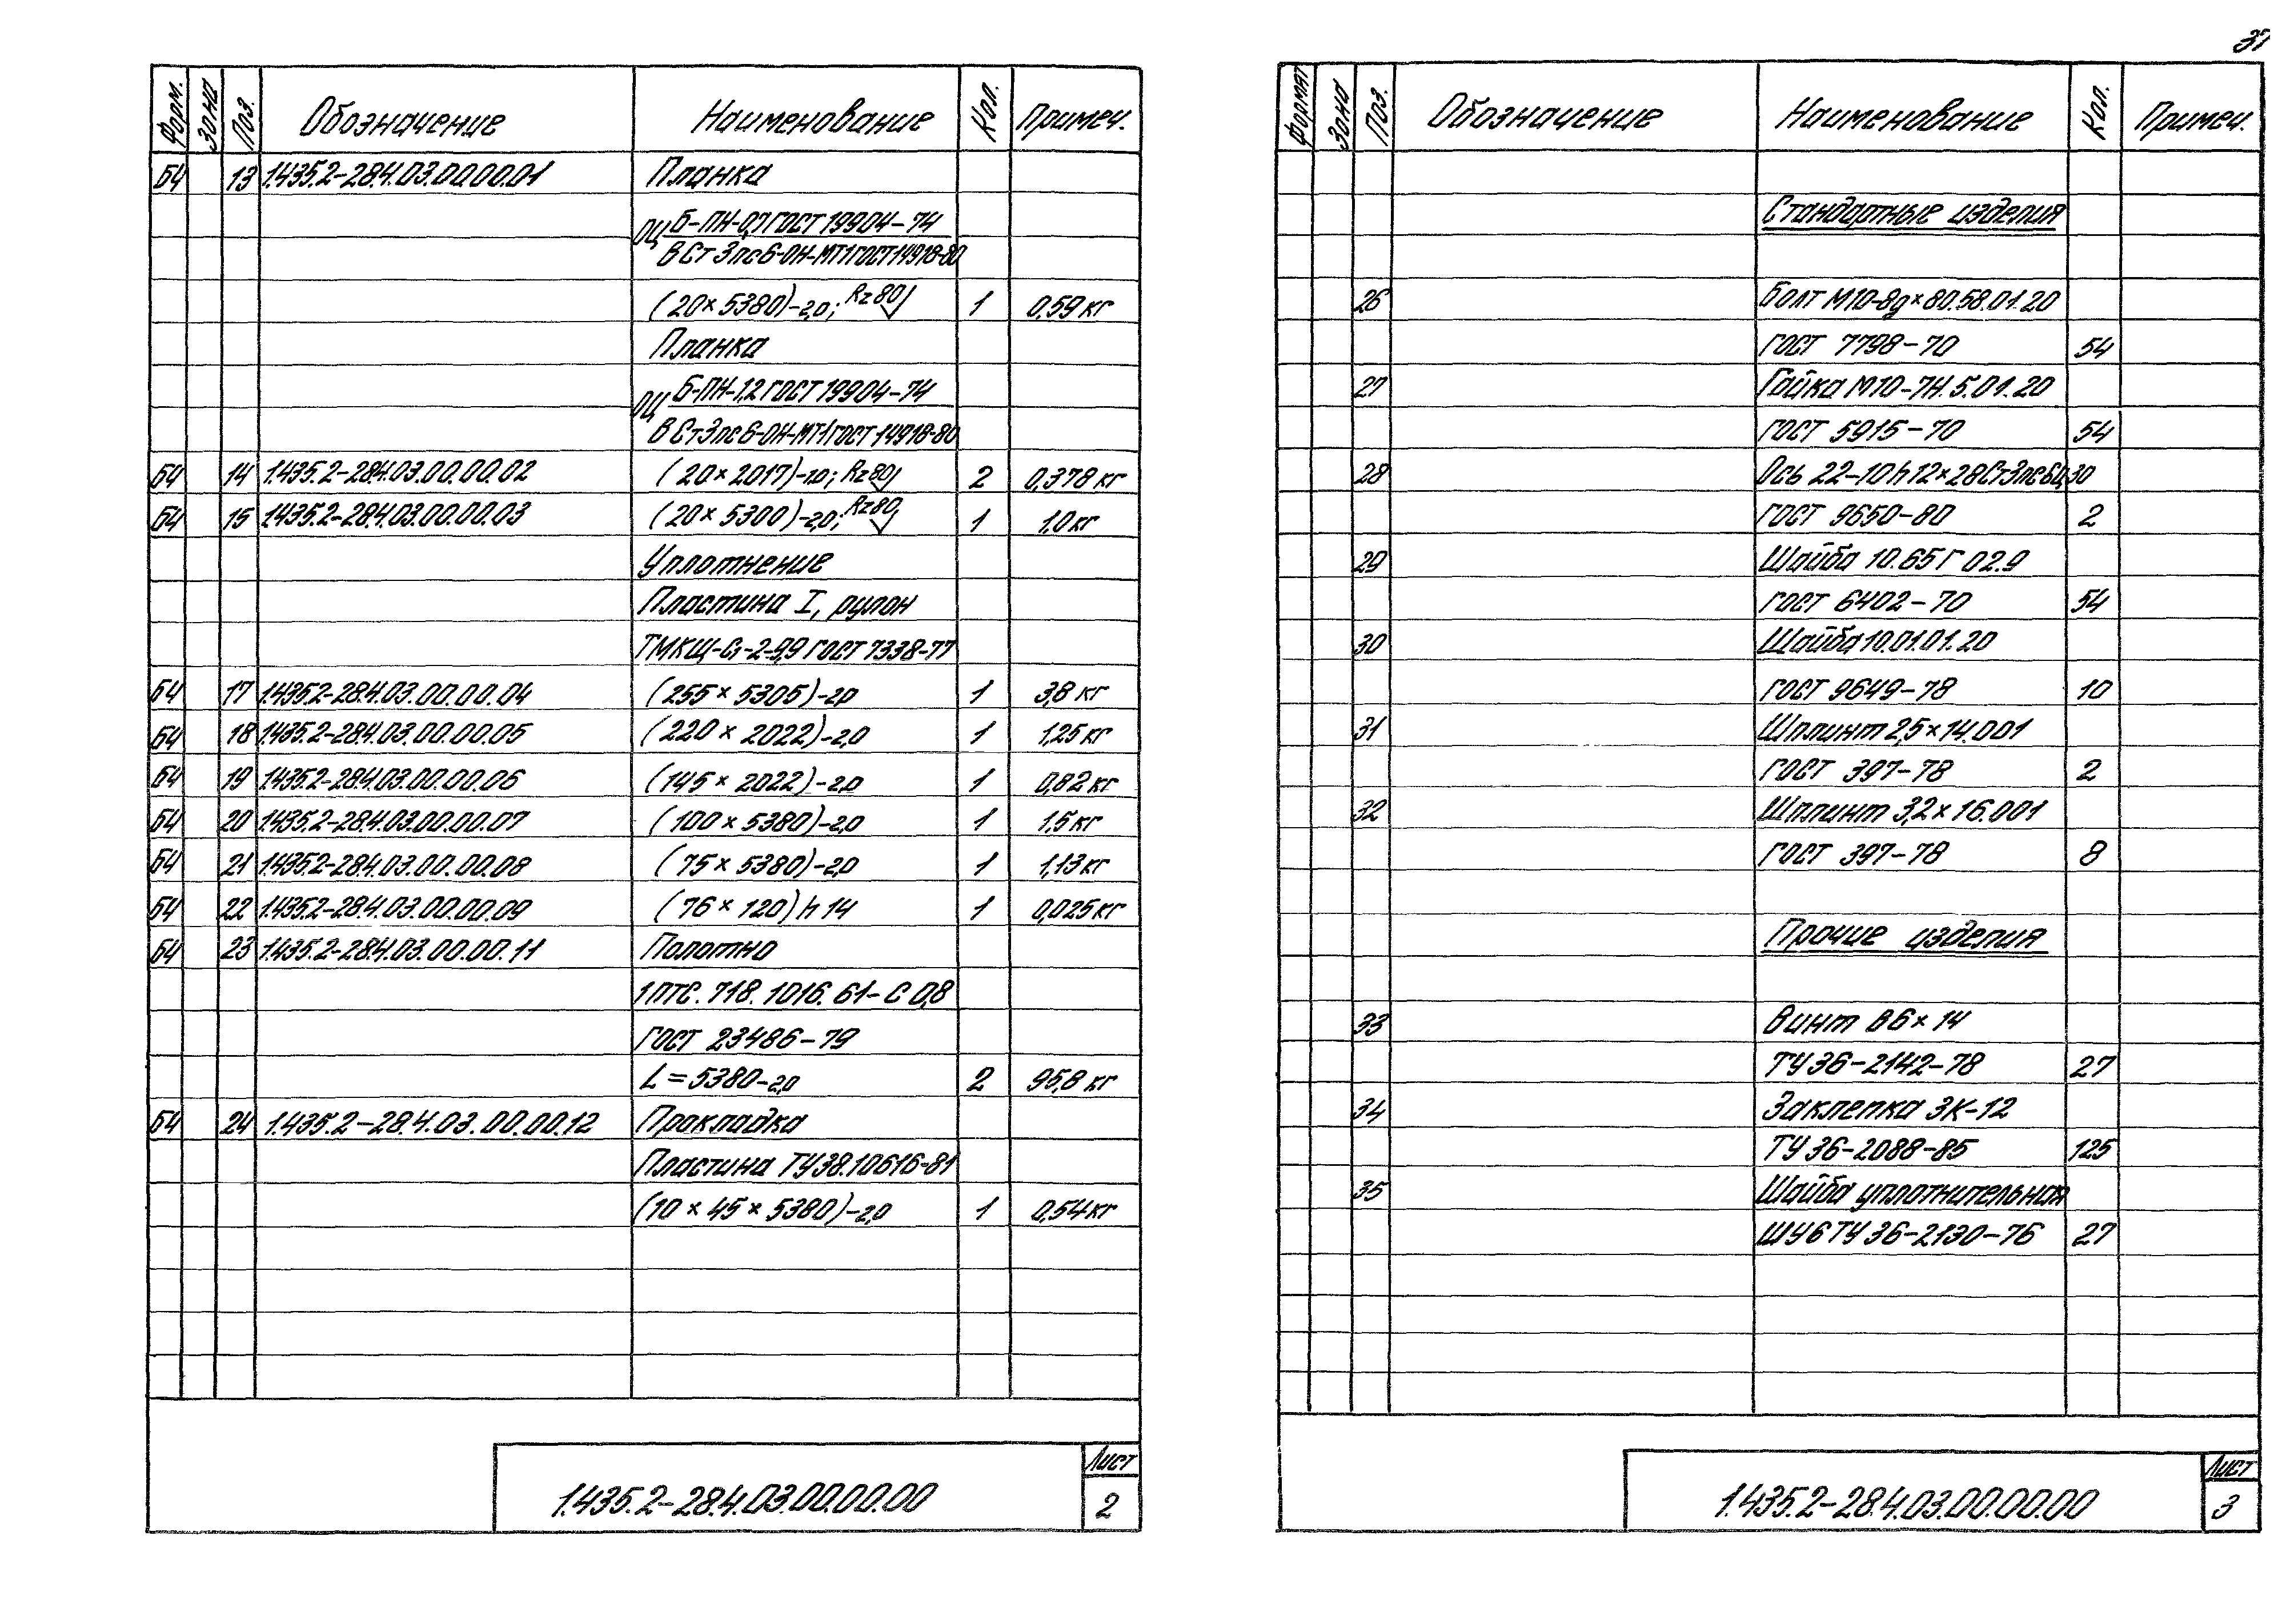 37
Форм. Зона Поз. Обозначение Наименование Кол. Примеч.
БЧ 13 1.435.2-28.4.03.00.00.01 Планка
ОЦ Б-ПН-0,7 ГОСТ 19904-74
В Ст 3пс 6-ОН-МТ1 ГОСТ 14918-80
(20×5380)-2,0; Rz80 1 0,59 кг
Планка
ОЦ Б-ПН-1,2 ГОСТ 19904-74
В Ст 3пс 6-ОН-МТ1 ГОСТ 14918-80
БЧ 14 1.435.2-28.4.03.00.00.02 (20×2017)-1,0; Rz80 2 0,378 кг
БЧ 15 1.435.2-28.4.03.00.00.03 (20×5300)-2,0; Rz80 1 1,0 кг
Уплотнение
Пластина I, рулон
ТМКЩ-С1-2-9,9 ГОСТ 7338-77
БЧ 17 1.435.2-28.4.03.00.00.04 (255×5305)-2,0 1 3,8 кг
БЧ 18 1.435.2-28.4.03.00.00.05 (220×2022)-2,0 1 1,25 кг
БЧ 19 1.435.2-28.4.03.00.00.06 (145×2022)-2,0 1 0,82 кг
БЧ 20 1.435.2-28.4.03.00.00.07 (100×5380)-2,0 1 1,5 кг
БЧ 21 1.435.2-28.4.03.00.00.08 (75×5380)-2,0 1 1,13 кг
БЧ 22 1.435.2-28.4.03.00.00.09 (76×120) h 14 1 0,025 кг
БЧ 23 1.435.2-28.4.03.00.00.11 Полотно
1 ПТС. 718. 1016. 61-С 0,8
ГОСТ 23486-79
L=5380-2,0 2 95,8 кг
БЧ 24 1.435.2-28.4.03.00.00.12 Прокладка
Пластина ТУ 38.10616-81
(10×45×5380)-2,0 1 0,54 кг
1.435.2-28.4.03.00.00.00
Лист
2
Формат Зона Поз. Обозначение Наименование Кол. Примеч.
Стандартные изделия
26 Болт М10-8g×80.58.01.20
ГОСТ 7798-70 54
27 Гайка М10-7Н.5.01.20
ГОСТ 5915-70 54
28 Ось 22-10h12×28 Ст3пс6ц30
ГОСТ 9650-80 2
29 Шайба 10.65Г 02.9
ГОСТ 6402-70 54
30 Шайба 10.01.01.20
ГОСТ 9649-78 10
31 Шплинт 2,5×14.001
ГОСТ 397-78 2
32 Шплинт 3,2×16.001
ГОСТ 397-78 8
Прочие изделия
33 Винт В6×14
ТУ 36-2142-78 27
34 Заклепка ЗК-12
ТУ 36-2088-85 125
35 Шайба уплотнительная
ШУ6 ТУ 36-2130-76 27
1.435.2-28.4.03.00.00.00
Лист
3